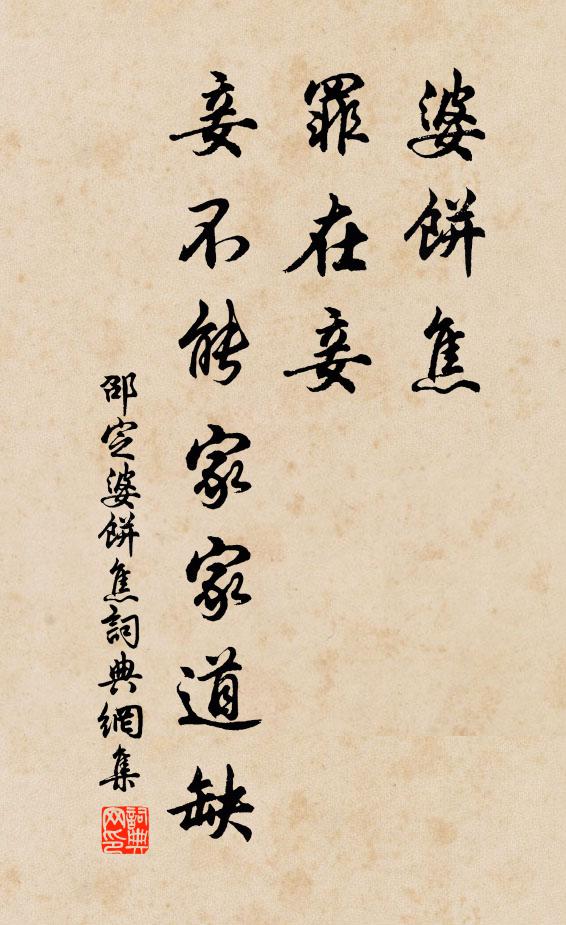 婆餅焦
罪在妾
妾不能家家道缺
邵定婆餅焦詞典網集
詞典
网印